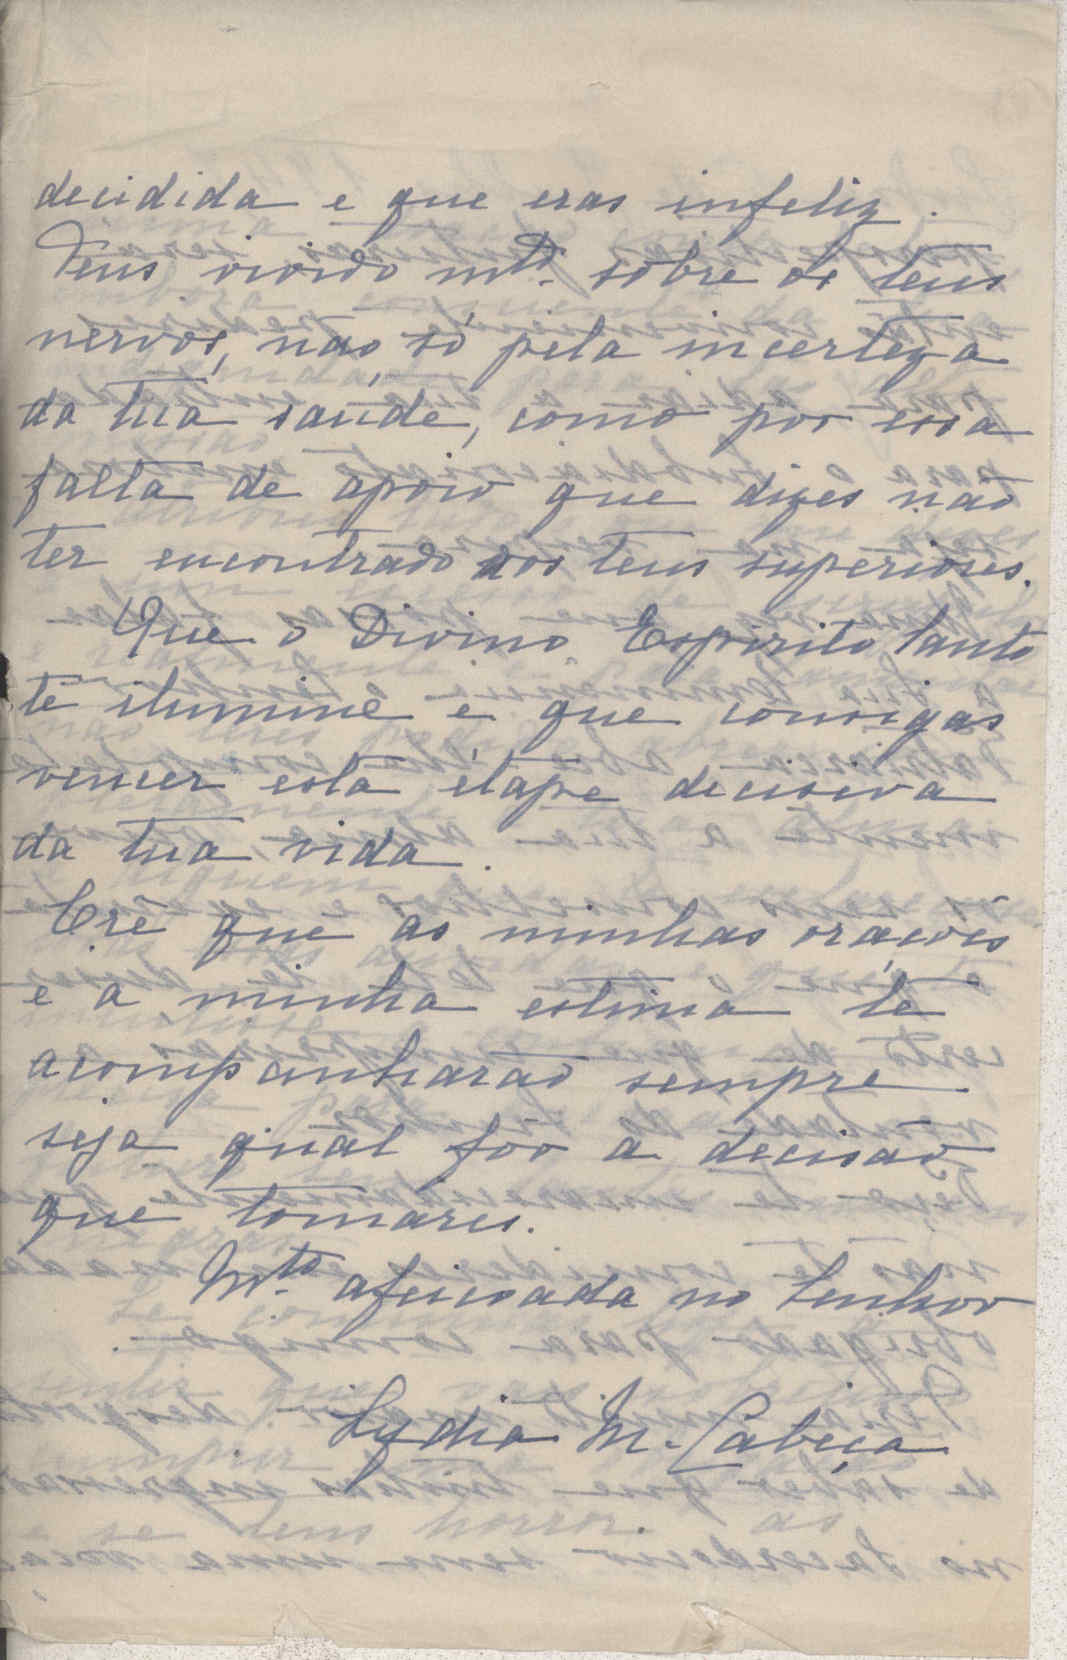 decidida e que eras infeliz.
Tens vivido mto. sobre os teus
nervos, não só pela incerteza
da tua saúde, como por essa
falta de apoio que dizes não
ter encontrado nos teus superiores.
Que o Divino Espírito Santo
te ilumine e que consigas
vencer esta étape decisiva
da tua vida.
Crê que as minhas orações
e a minha estima te
acompanharão sempre
seja qual fôr a decisão
que tomares.
Mto. afeiçoada no Senhor
Lydia M. Cabeça